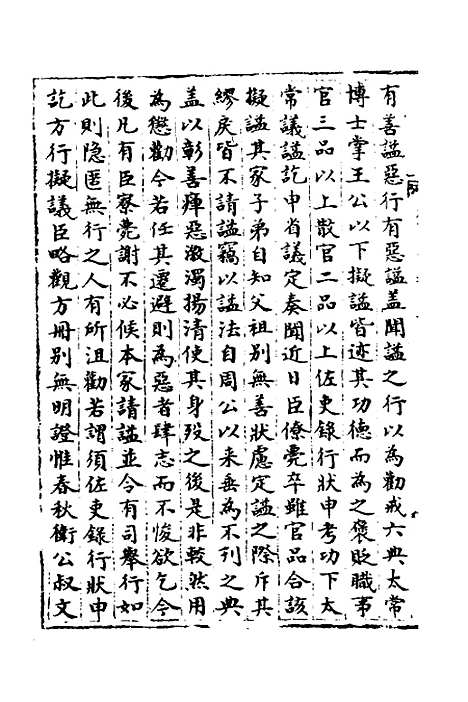 有善諡惡行有惡諡蓋聞諡之行以為勸戒六典太常
博士掌王公以下擬諡皆迹其功德而為之褒貶職事
官三品以上散官二品以上佐吏錄行狀申考功下太
常議諡訖申省議定奏聞近日臣僚薨卒雖官品合該
擬諡其家子弟自知父祖別無善狀慮定諡之際斥其
繆戾皆不請諡竊以諡法自周公以來垂為不刊之典
蓋以彰善癉惡激濁揚清使其身歿之後是非較然用
為懲勸今若任其遷避則為惡者肆志而不悛欲乞今
後凡有臣寮薨謝不必候本家請諡並令有司舉行如
此則隐匿無行之人有所沮勸若謂須佐吏錄行狀申
訖方行擬議臣略觀方冊別無明證惟春秋衛公叔文